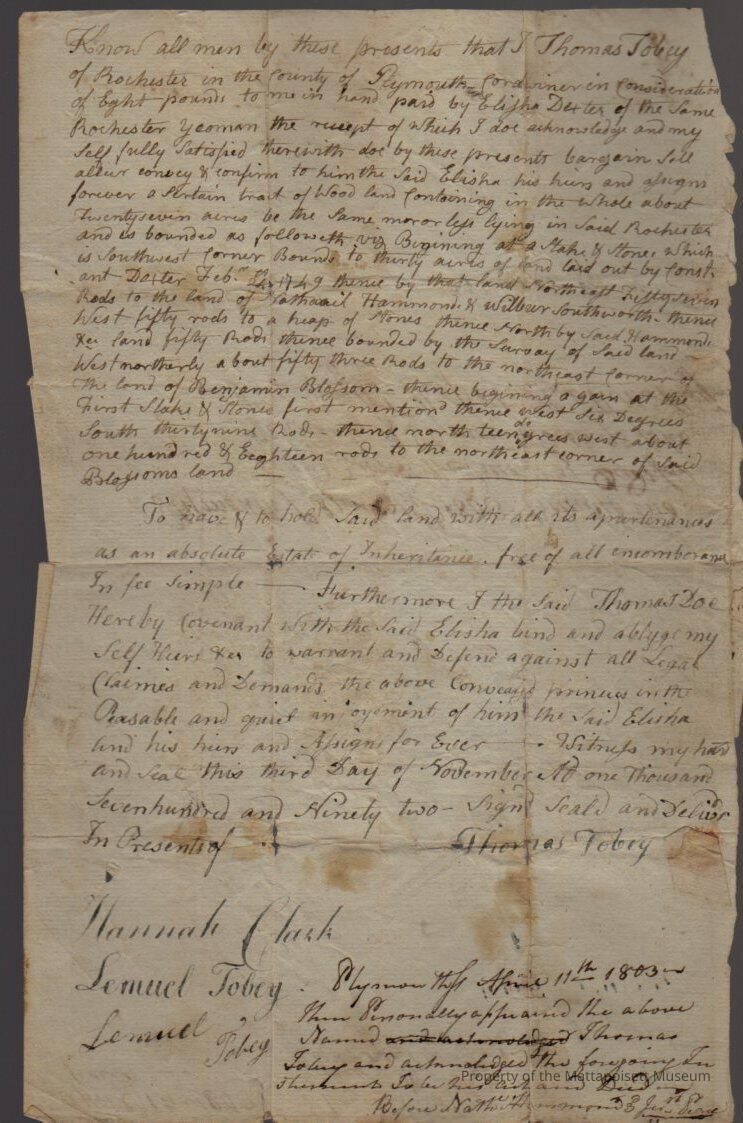 Know all men by these presents that I Thomas Tobey
of Rochester in the County of Plymouth Cordwiner in Consideration
of Eght pounds to me in hand paid by Elisha Dexter of the Same
Rochester Yeoman the receipt of which I doe acknowledge and my
Self fully Satisfied therewith doe by these presents bargain Sell
convey & confirm to him the Said Elisha his heirs and assigns
forever a Sertain tract of Wood land Containing in the whole about
Twentysevin acres be the Same mor or less lying in Said Rochester
and is bounded as followeth viz Begining at a Stake & Stones which
is Southwest Corner Bounds to thirty acres of land laid out by Const
ant Dexter Feb. 1749 thence by that land Northeast Fiftysevin
Rods to the land of Nathaniel Hammond & Wilbur Southworth thence
West fifty rods to a heap of Stones thence North by Said Hammond
&cr land fifty Rods thence bounded by the Survay of Said land
West northerly about fifty three Rods to the northeast Corner of
the land of Benjamin Blossom - thence begining again at the
First Stake & Stones first mentiond thence West Six Degrees
South thirtynine Rods - thence north teen degrees west about
one hundred & Eeghteen rods to the northeast corner of Said
Blossoms land
To have & to hold Said land with all its apurtenances
as an absolute Estate of Inheritence free of all incomborance
In fee Simple — Furthermore I the Said Thomas Doe
Hereby Covenant With the Said Elisha bind and ablyge my
Self Heirs &cr to warrant and Defend against all Legal
Claimes and Demands the above Conveaid primces in the
Peasable and quiet injoyement of him the Said Elisha
and his heirs and Assigns for Ever — Witness my hand
and Seal this third Day of November AD one Thousand
Sevenhundred and Ninety two - Signd Seald and Delivd
In Presents of
Thomas Tobey
Hannah Clark
Lemuel Tobey
Lemuel Tobey
Plymouth ss April 11th 1803
then Personally appeaird the above
Named and acknowledged Thomas
Tobey and acknowledged the foregoing In
strument To be his act and Deed
Before Nathl Hammond Jus Peace
Property of the Mattapoisett Museum